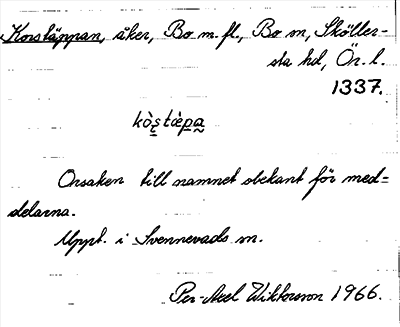 Korstäppan, åker, Bo m. fl., Bo sn, Sköller-
sta hd, Ör. l.
1337.
kò̀s̱tæ̀pa
Orsaken till namnet obekant för med-
delarna.
Uppt. i Svennevads sn.
Per-Axel Wiktorsson 1966.